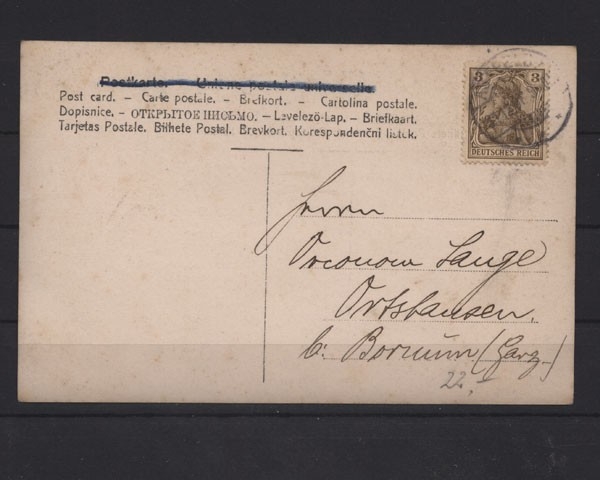 Postkarte. Union postale universelle
Post card. – Carte postale. – Brefkort. – Cartolina postale.
Dopisnice. – ОТКРЫТОЕ ПИСЬМО. – Levelező-Lap. – Briefkaart.
Tarjetas Postale. Bilhete Postal. Brevkort. Korespondenčni listek.
3 3
DEUTSCHES REICH
Herrn
Oeconom Lange
Ortshausen.
b. Bornum (Harz.)
22.